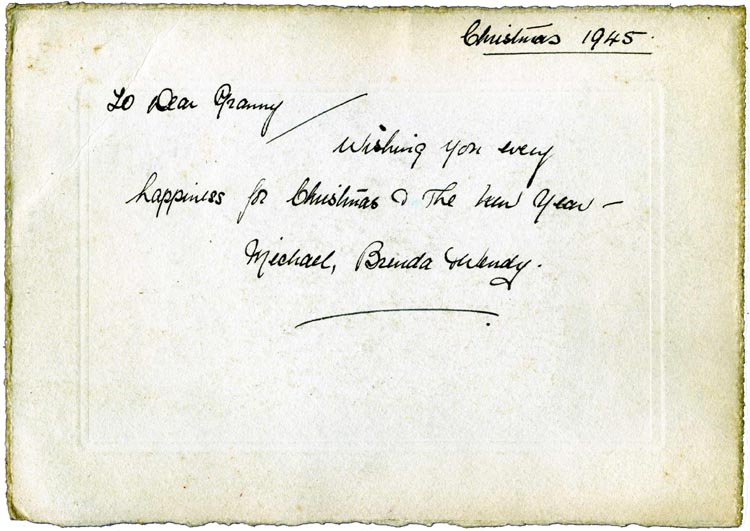 Christmas 1945.
To Dear Granny /
Wishing you every
happiness for Christmas & The New Year –
Michael, Brenda & Wendy.